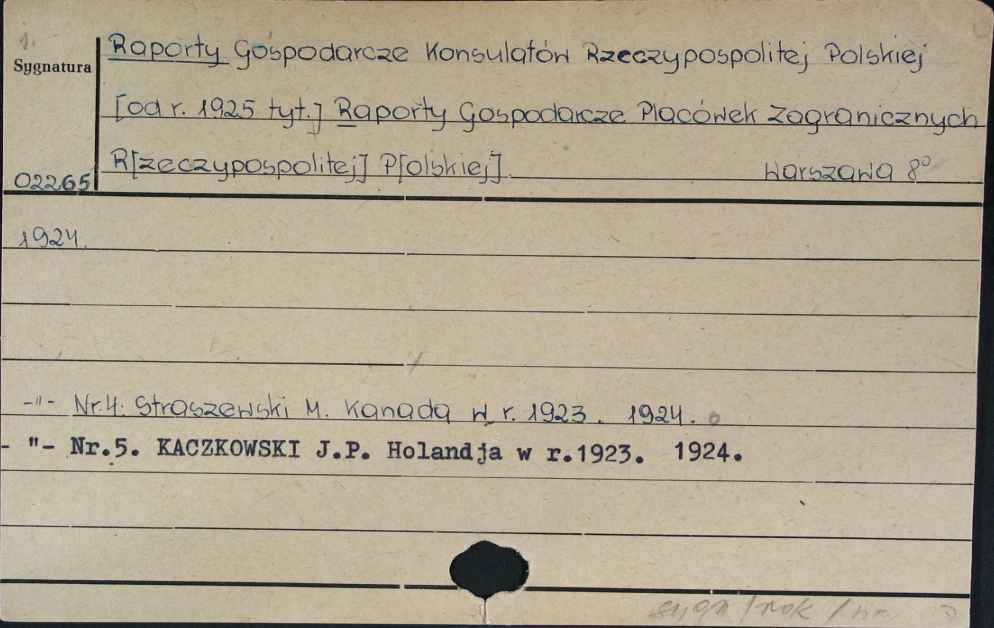 1.
Sygnatura
Raporty Gospodarcze Konsulatów Rzeczypospolitej Polskiej
[od r. 1925 tyt.] Raporty Gospodarcze Placówek Zagranicznych
R[zeczypospolitej] P[olskiej]. Warszawa 8°
02265
1924.
-"- Nr.4. Straszewski M. Kanada w r. 1923. 1924.
- "- Nr.5. KACZKOWSKI J.P. Holandja w r.1923. 1924.
sygn / rok /